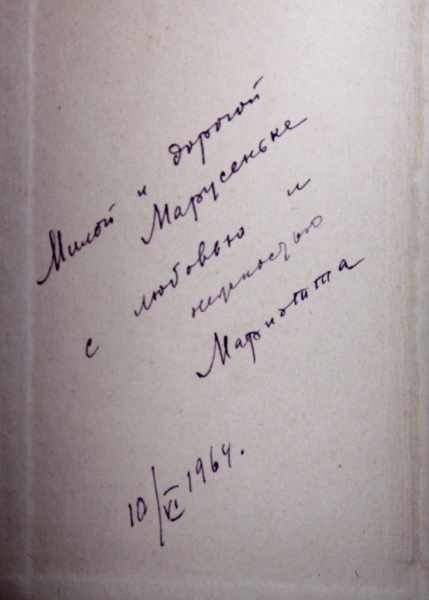 Милой и дорогой
Марусеньке
с любовью и
нежностью
Мариэтта
10/VI 1964.